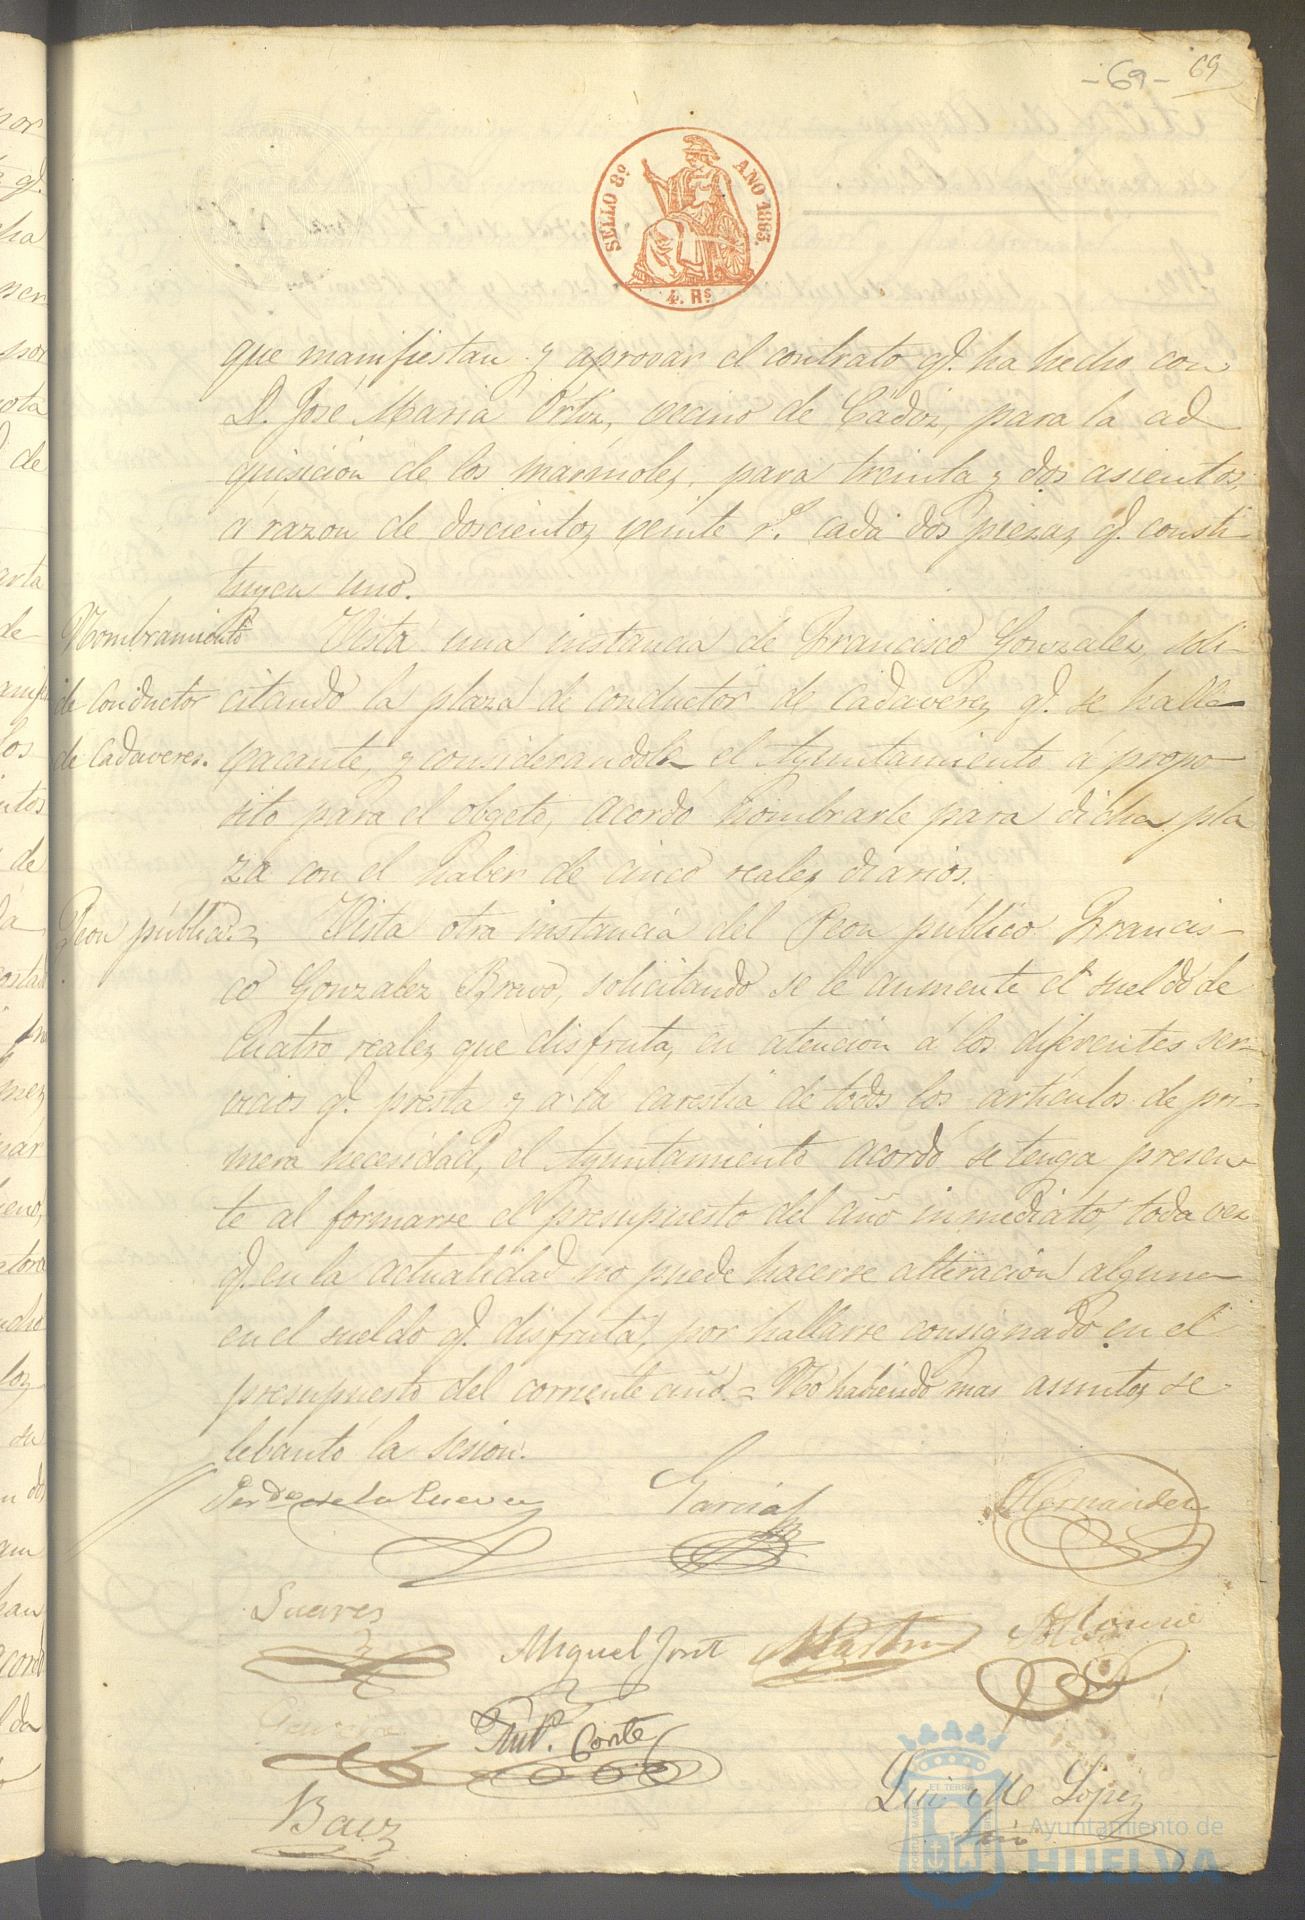 - 69 - 69
SELLO 8º AÑO 1863.
4. Rs
que manifiestan y aprovar el contrato q.e ha hecho con
D. José Maria Ortiz, vecino de Cádiz, para la ad
quisicion de los marmoles, para treinta y dos asientos,
a razon de doscientos veinte r.s cada dos piezas q.e consti-
tuyen uno.
Nombramiento Vista una instancia de Francisco Gonzalez, soli-
de conductor citando la plaza de conductor de cadaveres q.e se halla
de cadaveres. vacante, y considerandole el Ayuntamiento á propo-
sito para el obgeto, acordó nombrarle para dicha pla
za con el haber de cinco reales diarios.
Peon público. Vista otra instancia del Peon público Francis-
co Gonzalez Bravo, solicitando se le aumente el sueldo de
cuatro reales que disfruta, en atencion á los diferentes ser-
vicios q.e presta y á la carestia de todos los articulos de pri-
mera necesidad, el Ayuntamiento acordó se tenga presen-
te al formarse el presupuesto del año inmediato, toda vez
q.e en la actualidad no puede hacerse alteracion alguna
en el sueldo q.e disfruta, por hallarse consignado en el
presupuesto del corriente año. = No habiendo mas asuntos se
lebantó la sesion.
de la Cueva Garcia Hernandez
Suarez
Miguel Jont
Ant.o Conte
Luis M.e Lopez
Baez
Srio
Ayuntamiento de
HUELVA